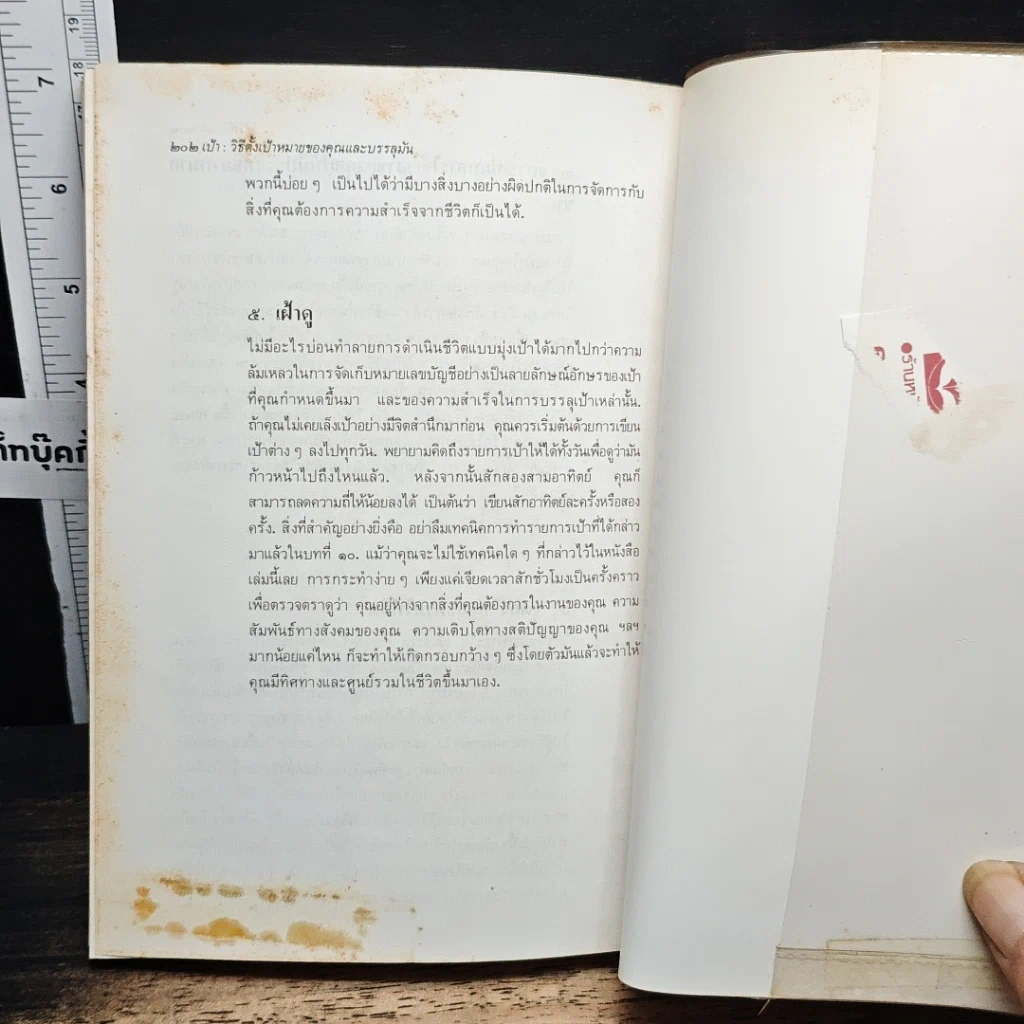 ๒๐๒ เป้า : วิธีตั้งเป้าหมายของคุณและบรรลุมัน
พวกนี้บ่อย ๆ เป็นไปได้ว่ามีบางสิ่งบางอย่างผิดปกติในการจัดการกับ
สิ่งที่คุณต้องการความสำเร็จจากชีวิตก็เป็นได้.
๕. เฝ้าดู
ไม่มีอะไรบ่อนทำลายการดำเนินชีวิตแบบมุ่งเป้าได้มากไปกว่าความ
ล้มเหลวในการจัดเก็บหมายเลขบัญชีอย่างเป็นลายลักษณ์อักษรของเป้า
ที่คุณกำหนดขึ้นมา และของความสำเร็จในการบรรลุเป้าเหล่านั้น.
ถ้าคุณไม่เคยเล็งเป้าอย่างมีจิตสำนึกมาก่อน คุณควรเริ่มต้นด้วยการเขียน
เป้าต่าง ๆ ลงไปทุกวัน. พยายามคิดถึงรายการเป้าให้ได้ทั้งวันเพื่อดูว่ามัน
ก้าวหน้าไปถึงไหนแล้ว. หลังจากนั้นสักสองสามอาทิตย์ คุณก็
สามารถลดความถี่ให้น้อยลงได้ เป็นต้นว่า เขียนสักอาทิตย์ละครั้งหรือสอง
ครั้ง. สิ่งที่สำคัญอย่างยิ่งคือ อย่าลืมเทคนิคการทำรายการเป้าที่ได้กล่าว
มาแล้วในบทที่ ๑๐. แม้ว่าคุณจะไม่ใช้เทคนิคใด ๆ ที่กล่าวไว้ในหนังสือ
เล่มนี้เลย การกระทำง่าย ๆ เพียงแค่เจียดเวลาสักชั่วโมงเป็นครั้งคราว
เพื่อตรวจตราดูว่า คุณอยู่ห่างจากสิ่งที่คุณต้องการในงานของคุณ ความ
สัมพันธ์ทางสังคมของคุณ ความเติบโตทางสติปัญญาของคุณ ฯลฯ
มากน้อยแค่ไหน ก็จะทำให้เกิดกรอบกว้าง ๆ ซึ่งโดยตัวมันแล้วจะทำให้
คุณมีทิศทางและศูนย์รวมในชีวิตขึ้นมาเอง.
19
18
7
6
5
4